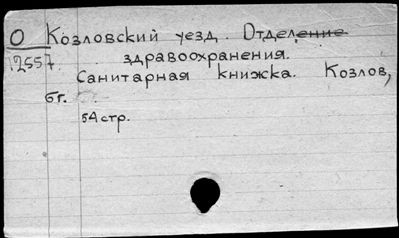 О Козловский уезд. Отделение
12557. здравоохранения.
Санитарная книжка. Козлов,
бг.
54 стр.